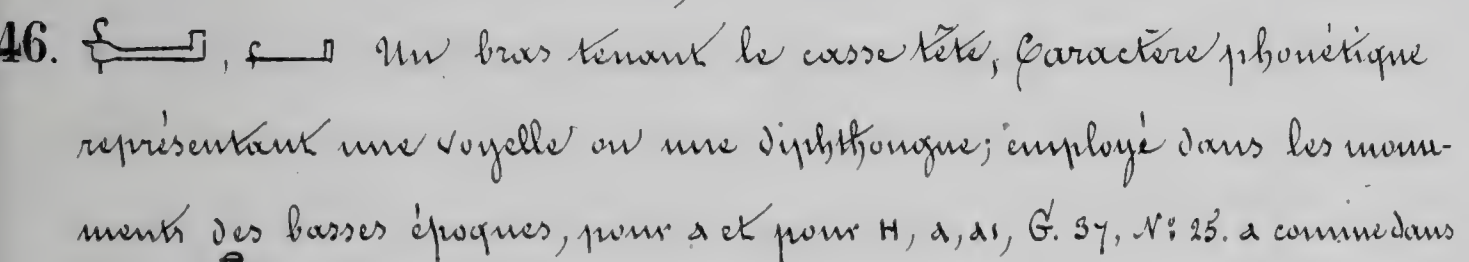 46. , Un bras tenant le casse tête, Caractère phonétique
représentant une voyelle ou une diphthongue; employé dans les monu-
ments des basses époques, pour ⲁ et pour ⲏ, ⲁ, ⲁⲓ, G. 37, N° 25. a comme dans